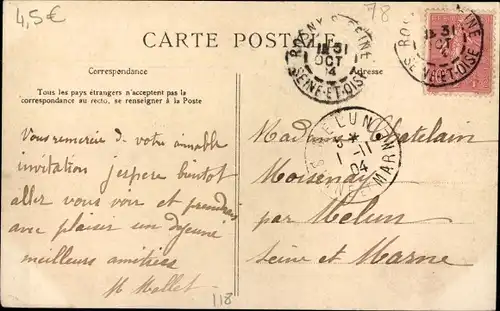 4,5€
78
CARTE POSTALE
ROSNY S SEINE
31
OCT
04
SEINE-ET-OISE
ROSNY S SEINE
31
OCT
SEINE-ET-OISE
Correspondance
Adresse
Tous les pays étrangers n'acceptent pas la
correspondance au recto, se renseigner à la Poste
MELUN
5 *
1 -11
04
SEINE ET MARNE
Vous remercie de votre aimable
invitation j'espere bientot
aller vous voir et prendre
avec plaisir un dejeuné
meilleurs amitiées
M Mallet
118
Madame Chatelain
Moisenay
par Melun
Seine et Marne